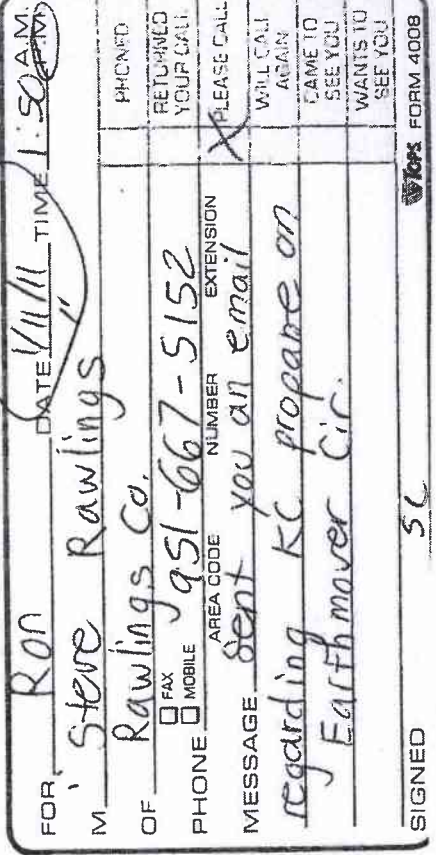 FOR Ron DATE 1/11/11 TIME 1:50 A.M.
P.M.
M Steve Rawlings
OF Rawlings Co.
FAX
MOBILE
PHONE 951-667-5152
AREA CODE NUMBER EXTENSION
MESSAGE Sent you an email
regarding KC propane on
Earthmover Cir.
SIGNED SC
PHONED
RETURNED
YOUR CALL
PLEASE CALL X
WILL CALL
AGAIN
CAME TO
SEE YOU
WANTS TO
SEE YOU
TOPS FORM 4008